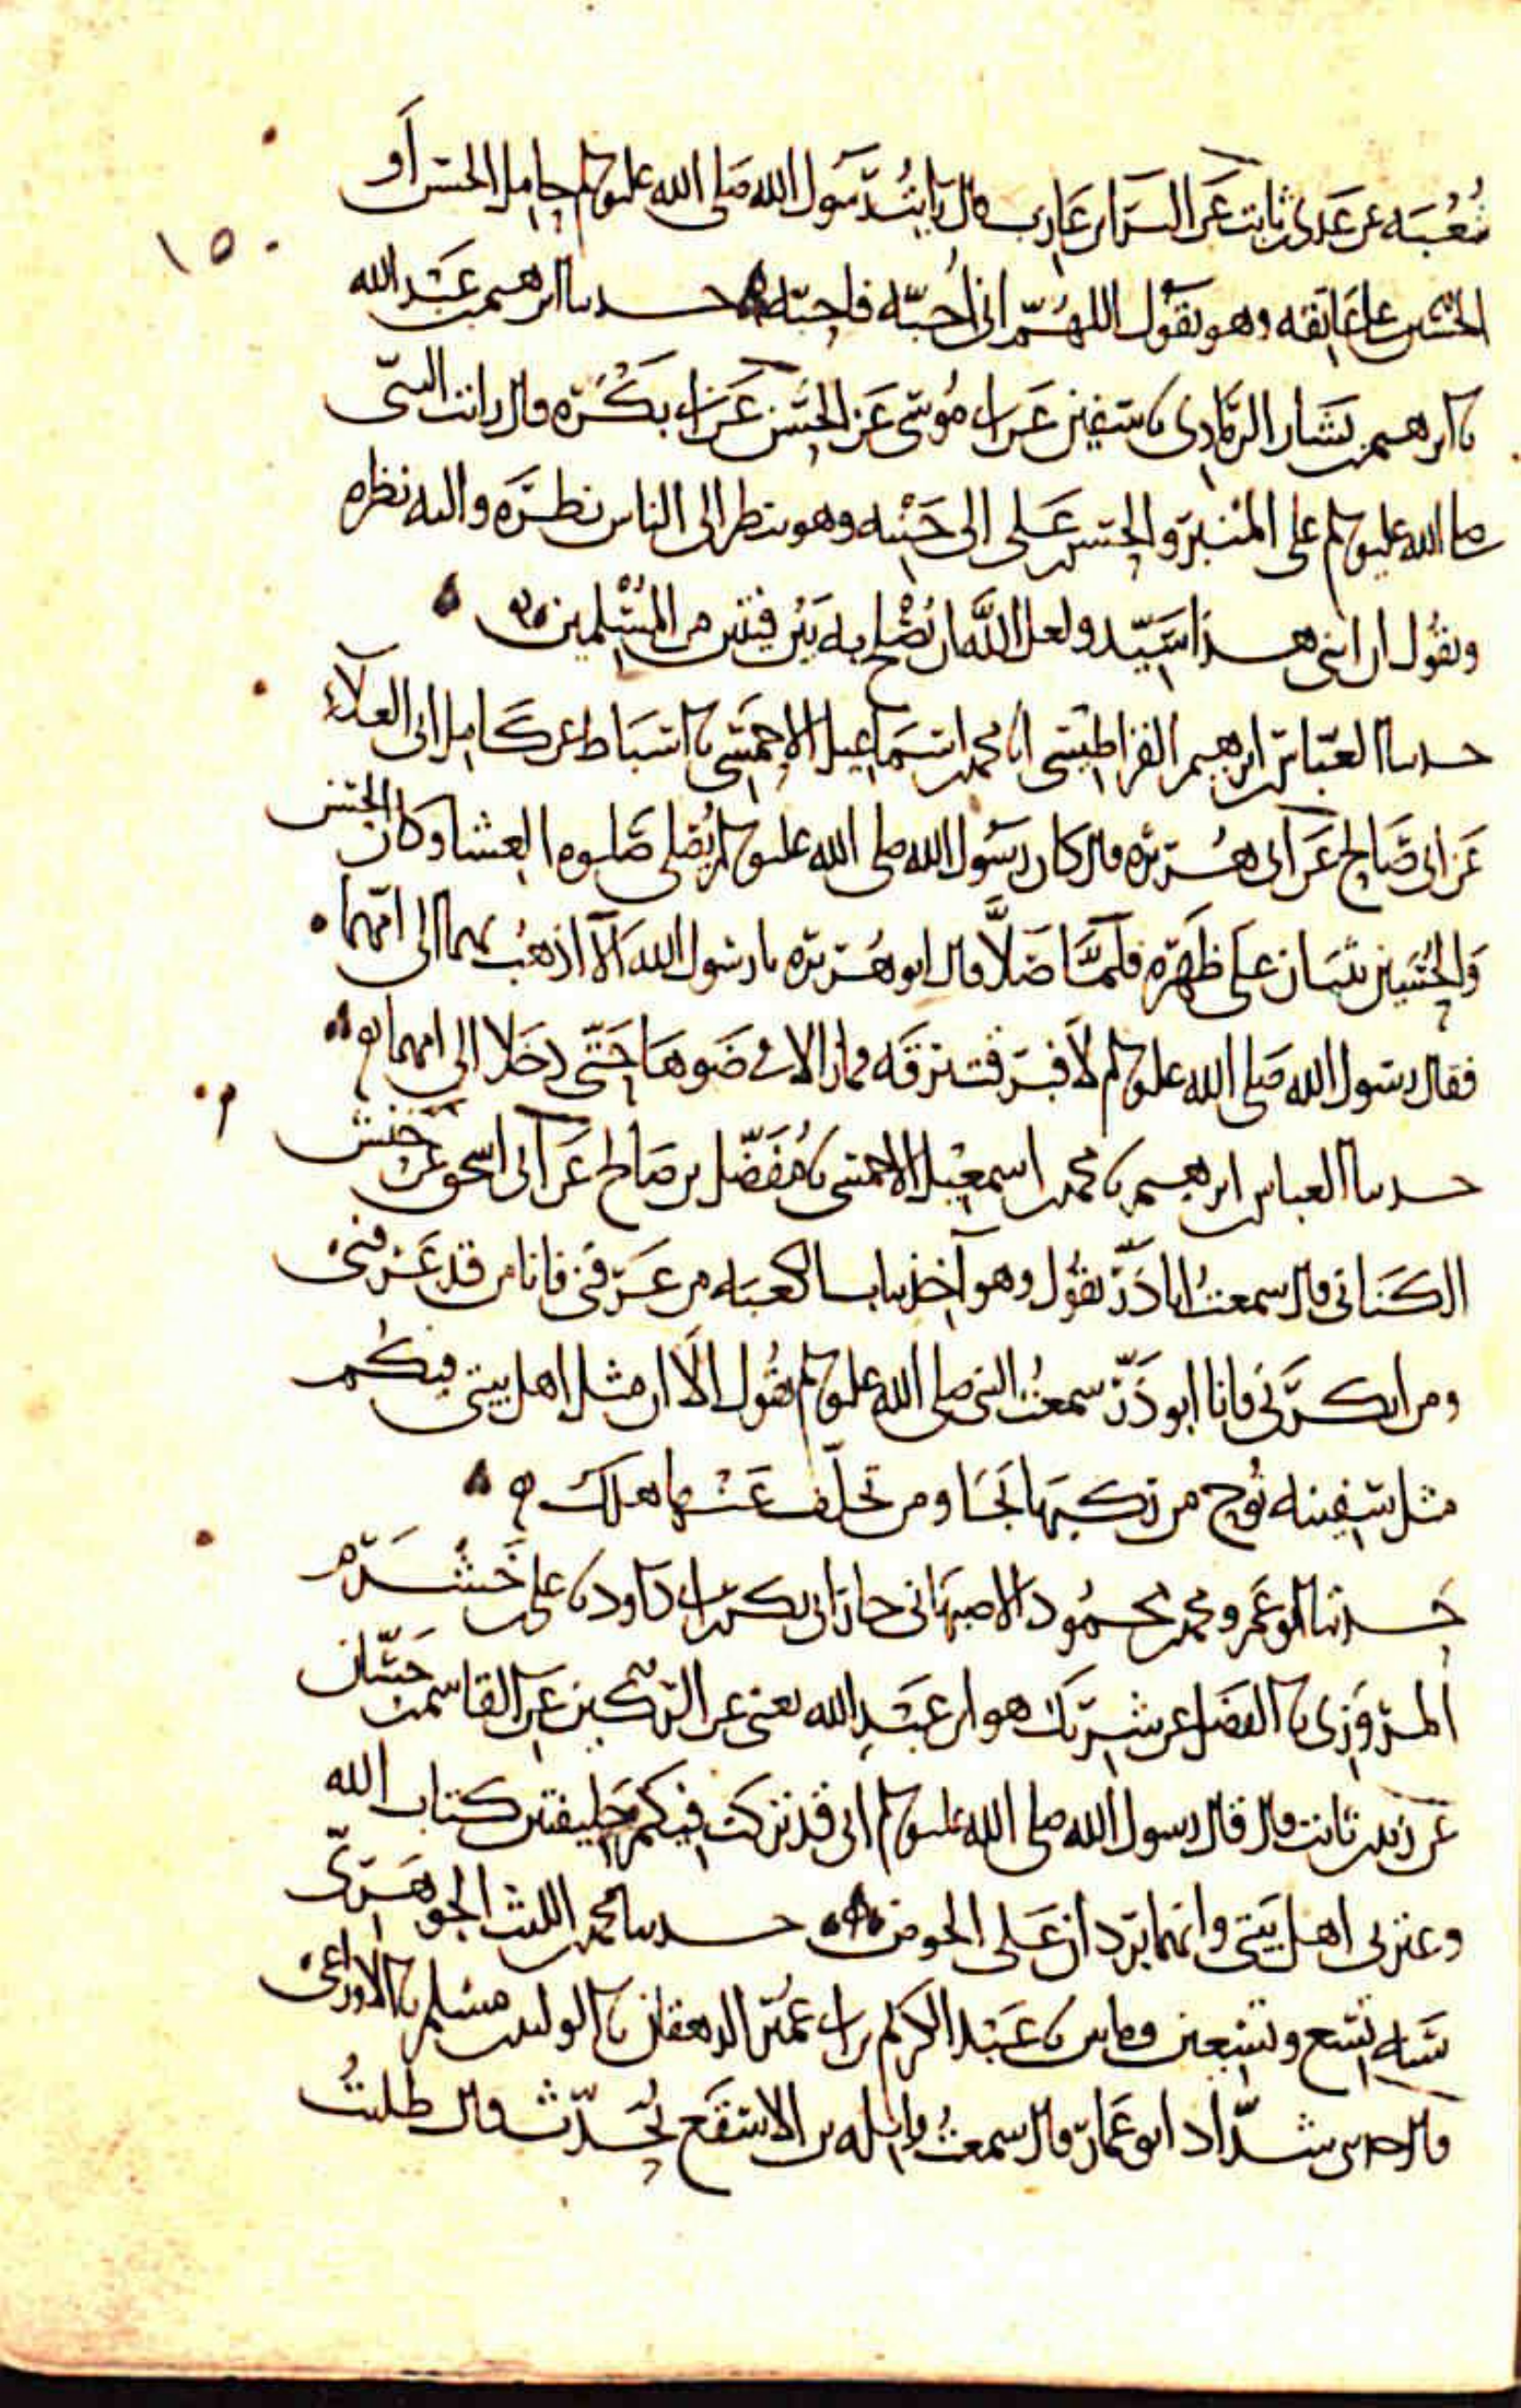 شُعْبَه عن عَدى بن ثابت عَن البَرَا بن عَازِب قال رايتُ رَسُول الله صَلى الله عليه وسلم حامل الحسَن أو
الحُسَين على عَاتقه وهو يقُول اللهُمّ انى اُحبّه فاحبّه حدثنا ابرهيم بن عَبْد الله
نا ابرهيم بن بَشار الرمَادِى نا سفين عَن ابى مُوسَى عَن الحسَن عَن ابى بَكْرَه قال رايت النبى
صلى الله عليه وسلم على المنْبَر والحسَن بن عَلى الى جَنْبه وهو ينظر الى الناس نظرَه واليه نظره
ويقُول ان ابنى هذا سَيّد ولعل اللَّه ان يُصْلح به بَيْن فِئتين من المُسْلمين
حدثنا العَبّاس بن ابرهيم القراطيسى نا محمد بن اسمَاعيل الاحمَسى نا اسبَاط عن كَامل ابى العلاء
عَن ابى صَالح عَن ابى هُرَيْرَه قال كان رسُول الله صلى الله عليه وسلم يُصَلى صَلوه العشا وكان الحسَن
وَالحُسَين يثبَان على ظَهْرِه فلَمَّا صَلَّا قال ابو هُرَيْرَه يا رسُول الله اَلَا اذهَبُ بهما الى امّهما
فقال رسُول الله صَلى الله عليه وسلم لَا فبَرقت بَرقَه فما زالا فى ضَوهَا حَتّى دَخَلا الى امهما
حدثنا العباس بن ابرهيم نا محمد بن اسمعيل الاحمَسى نا مُفَضّل بن صَالح عَن ابى اسحق عَن حنش
الكنَانى قال سمعتُ ابا ذَرّ يقُول وهو آخذ بباب الكعبَه من عَرفَنى فانا من قد عَرفنى
ومن انكرَنى فانا ابو ذَرّ سمعتُ النبى صلى الله عليه وسلم يقُول الَا ان مثل اهل بيتى فيكُم
مثل سَفينه نُوح من ركبهَا نجَا ومن تخلّف عَنْها هلكَ
حَدثنا ابو عَمرو محمد بن محمُود الاصبهَانى جار ابى بكر بن ابى دَاود نا على بن خَشْرَم
المرْوَزى نا الفَضل عن شَرِيك هو ابن عَبْدِ الله يعنى عن الرُّكَين عَن القاسم بن حَسّان
عَن زَيد بن ثابت قال قال رسول الله صلى الله عليه وسلم انى قد تركت فيكم خليفتين كتاب الله
وعترتى اهل بَيتى وانهما يَردان عَلى الحوض حدثنا محمد بن الليث الجوهَرِىّ
سَنه تِسْع وتسْعين ومايتين نا عَبْد الكريم بن ابى عُمَيْر الدهقان نا الوليد بن مسْلم نا الاوزاعى
قال حدثنى شدّاد ابو عَمّار قال سمعتُ واثله بن الاسْقَع يُحَدّث قال طلبتُ
١٥٠